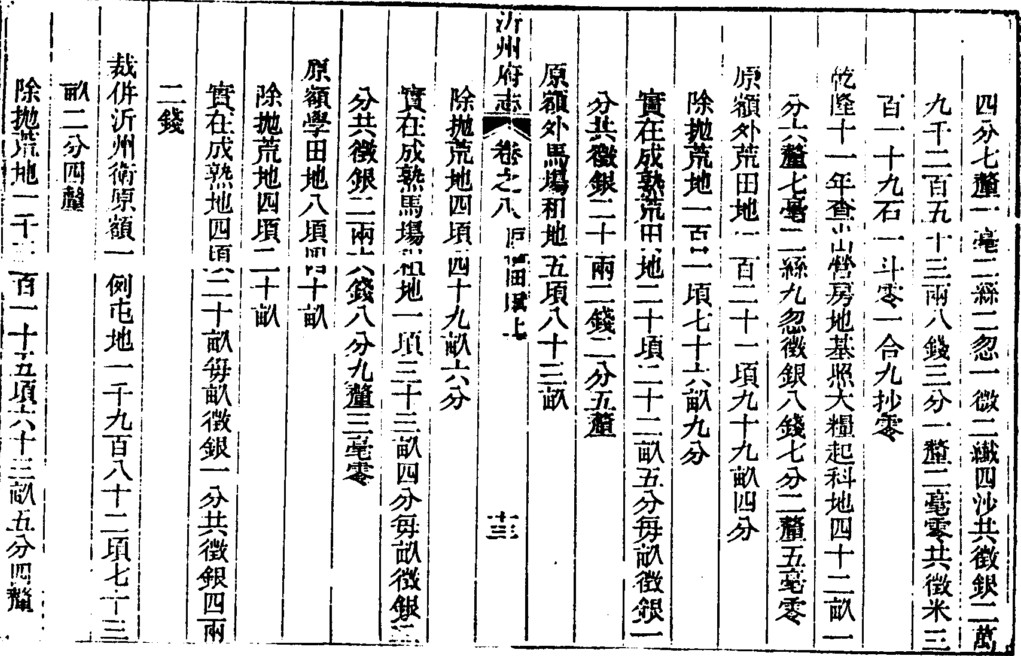 四分七釐一毫二絲二忽一微二纖四沙共徵銀二萬
九千二百五十三兩八錢三分一釐二毫零共徵米三
百一十九石一斗零一合九抄零
乾隆十一年查出營房地基照大糧起科地四十二畝一
分六釐七毫二絲九忽徵銀八錢七分二釐五毫零
原額外荒田地一百二十一頃九十九畝四分
除拋荒地一百一頃七十六畝九分
實在成熟荒田地二十頃二十二畝五分每畝徵銀一
分共徵銀二十兩二錢二分五釐
原額外馬場租地五頃八十三畝
沂州府志 卷之八 田賦上 十三
除拋荒地四頃四十九畝六分
實在成熟馬場租地一項三十三畝四分每畝徵銀二
分共徵銀二兩六錢八分九釐三毫零
原額學田地八頃四十畝
除拋荒地四頃二十畝
實在成熟地四頃二十畝每畝徵銀一分共徵銀四兩
二錢
裁併沂州衛原額一例屯地一千九百八十二頃七十三
畝二分四釐
除拋荒地一千 百一十五頃六十三畝五分四釐